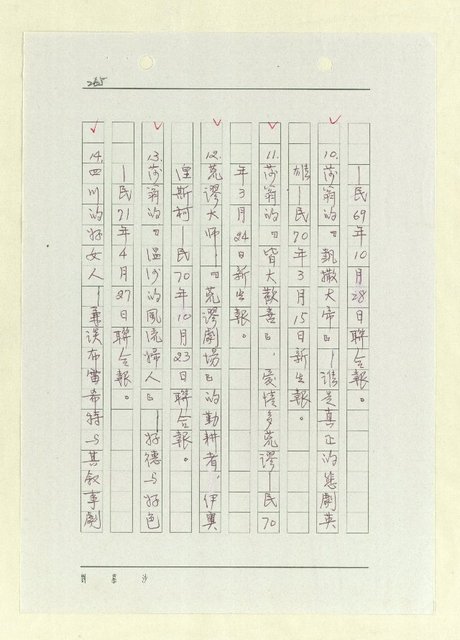 265
—民69年10月28日聯合報。
10.莎翁的『凱撒大帝』—誰是真正的悲劇英
雄—民70年3月15日新生報。
11.莎翁的『皆大歡喜』,愛情多荒謬—民70
年3月24日新生報。
12.荒謬大師—『荒謬劇場』的勤耕者,伊奧
湼斯柯—民70年10月23日聯合報。
13.莎翁的『溫沙的風流婦人』—好德与好色
—民71年4月27日聯合報。
14.四川的好女人—兼談布雷希特与其敘事劇
劉慕沙